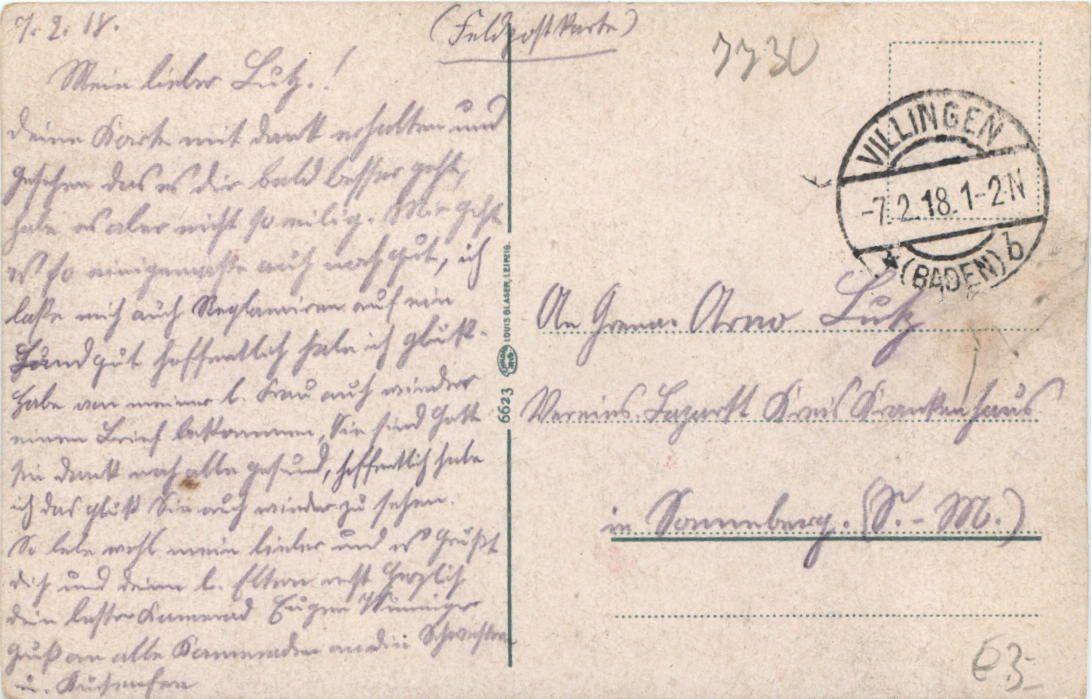 7. 2. 18.
(Feldpostkarte)
Mein lieber Lutz.!
deine Karte mit dank erhalten und
gesehen das es dir bald besser geht,
habe es aber nicht so eilig. Mir geht
es so einigermaße auch noch gut, ich
laße mich auch Reglamiren auf ein
Landgut hoffentlich habe ich glück.
habe von meiner l. Frau auch wieder
einen Brief bekommen, Sie sind Gott
sei dank noch alle gesund, hoffentlich habe
ich das glück Sie auch wieder zu sehen.
So lebe wohl mein lieber und es Grüßt
dich und deine l. Eltern recht herzlich
dein bester Kamerad Eugen
Gruß an alle Kameraden an die Schwestern
u.
6623
LOUIS GLASER, LEIPZIG.
7730
VILLINGEN
-7.2.18.1-2.N
*(BADEN) b
An Grena. Arno Lutz
Vereins. Lazarett Kreis Krankenhaus
in Sonneberg. (S.- M.)
63-